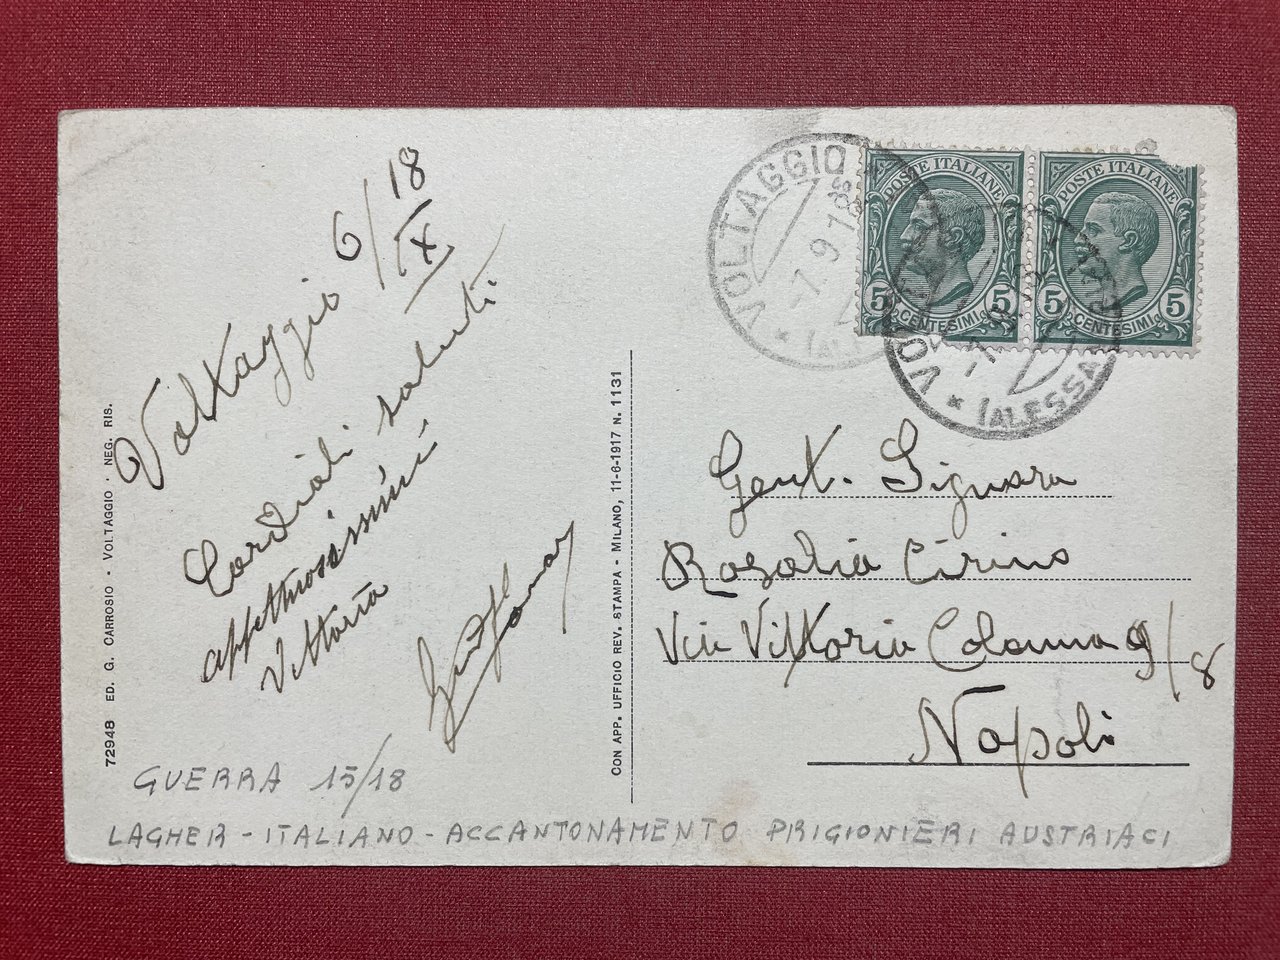 Voltaggio 6/18
IX
Cordiali saluti
affettuosissimi
Vittoria
72948 ED. G. CARROSIO - VOLTAGGIO - NEG. RIS.
CON APP. UFFICIO REV. STAMPA - MILANO, 11-6-1917 N. 1131
POSTE ITALIANE
5 CENTESIMI 5
POSTE ITALIANE
5 CENTESIMI 5
VOLTAGGIO
-7.9.18
(ALESSA
Gent. Signora
Rosalia Cirino
Via Vittoria Colonna 9/8
Napoli
GUERRA 15/18
LAGHER - ITALIANO - ACCANTONAMENTO PRIGIONIERI AUSTRIACI